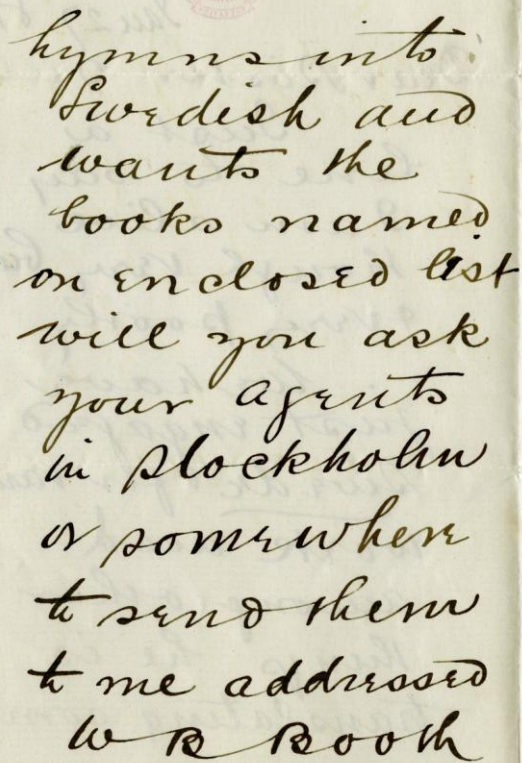 hymns into
Swedish and
wants the
books named
on enclosed list
will you ask
your agents
in Stockholm
or somewhere
to send them
to me addressed
W B Booth